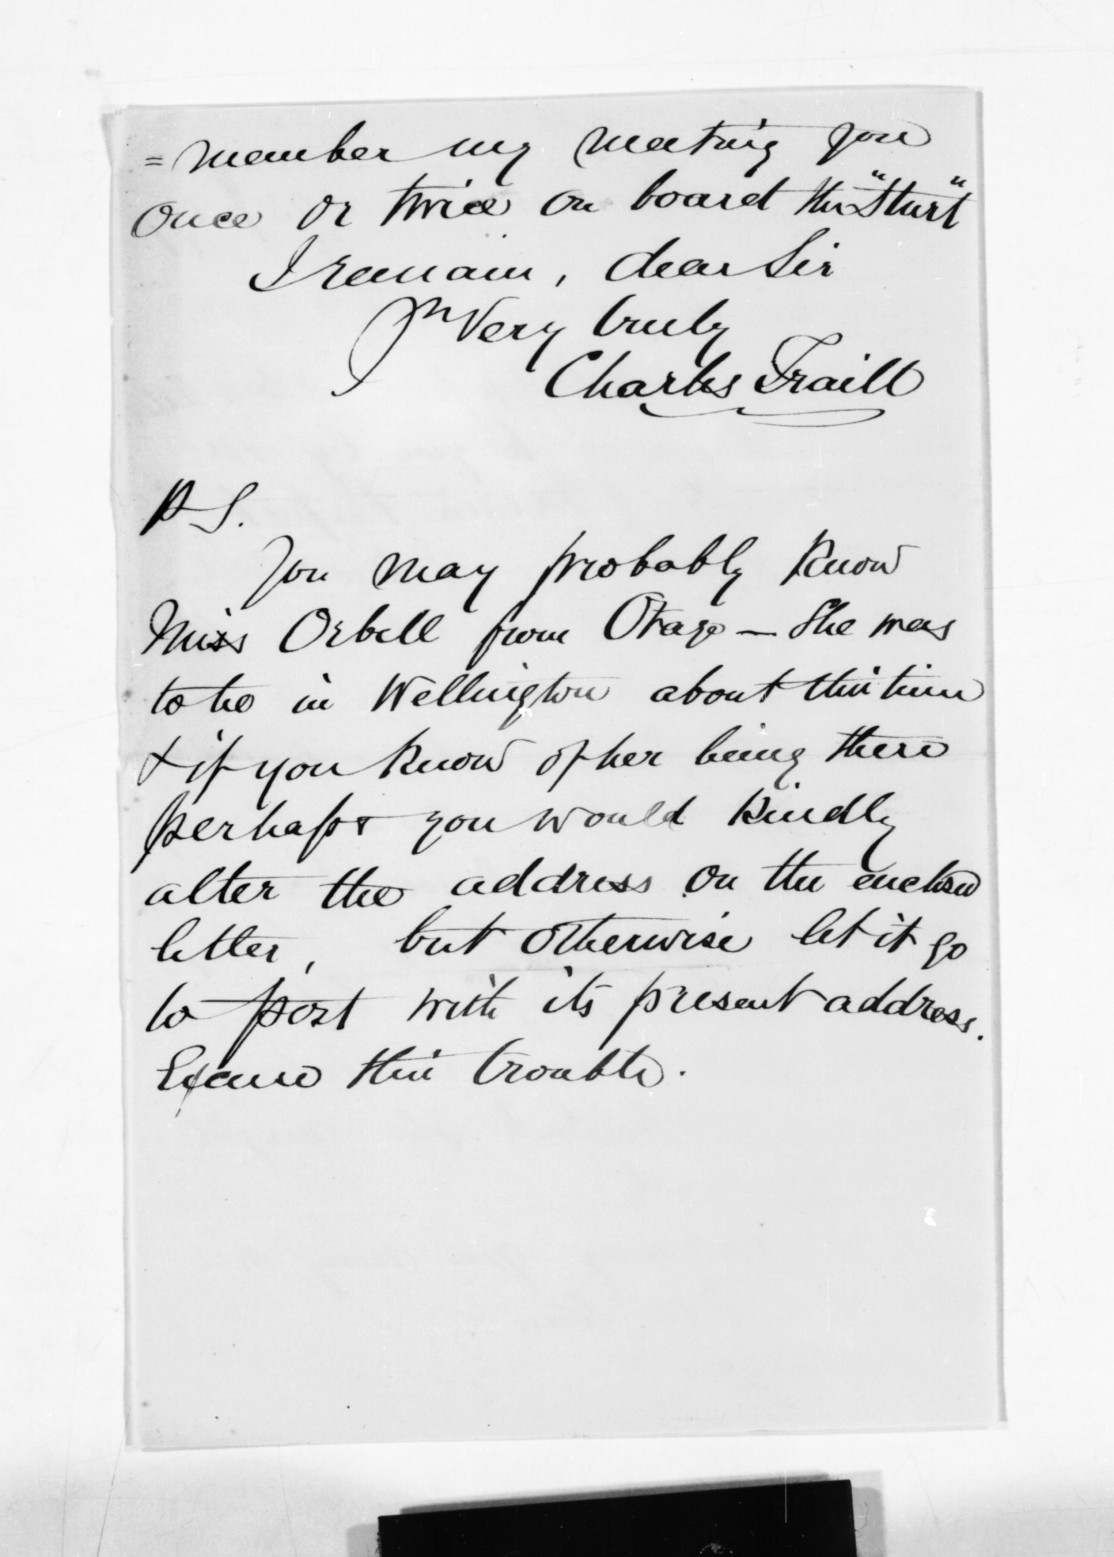 =member my meeting you
once or twice on board the "Sturt"
I remain, dear Sir
Yrs Very truly
Charles Traill
P.S.
You may probably know
Miss Orbell from Otago — She was
to be in Wellington about this time
& if you know of her being there
perhaps you would kindly
alter the address on the enclosed
letter, but otherwise let it go
to post with its present address.
Excuse this trouble.